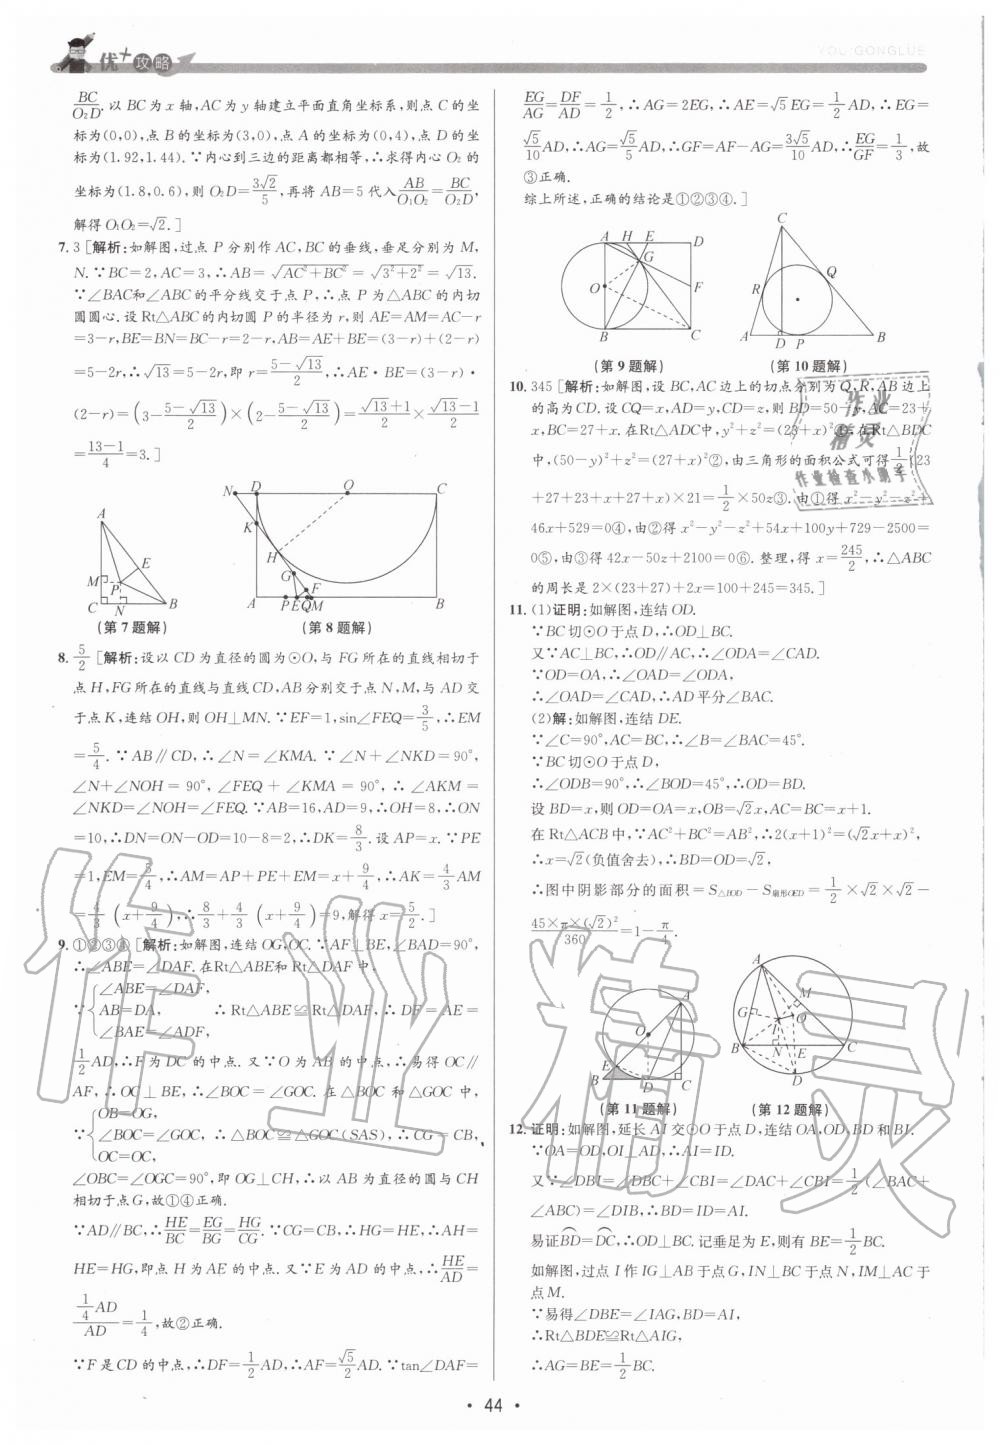 优+攻略
YOU+GONGLUE
BC/O₂D. 以 BC 为 x 轴,AC 为 y 轴建立平面直角坐标系,则点 C 的坐
标为(0,0),点 B 的坐标为(3,0),点 A 的坐标为(0,4),点 D 的坐
标为(1.92,1.44).∵内心到三边的距离都相等,∴求得内心 O₂ 的
坐标为(1.8,0.6),则 O₂D=3√2/5,再将 AB=5 代入 AB/O₁O₂=BC/O₂D,
解得 O₁O₂=√2.]
7. 3 [解析:如解图,过点 P 分别作 AC,BC 的垂线,垂足分别为 M,
N.∵BC=2,AC=3,∴AB=√(AC²+BC²)=√(3²+2²)=√13.
∵∠BAC和∠ABC的平分线交于点 P,∴点 P 为△ABC 的内切
圆圆心.设Rt△ABC的内切圆 P 的半径为 r,则 AE=AM=AC-r
=3-r,BE=BN=BC-r=2-r,AB=AE+BE=(3-r)+(2-r)
=5-2r,∴√13=5-2r,即 r=(5-√13)/2,∴AE·BE=(3-r)·
(2-r)=(3-(5-√13)/2)×(2-(5-√13)/2)=(√13+1)/2×(√13-1)/2
=(13-1)/4=3.]
A M E P C N B
N D O C K H G F A P E Q M B
(第 7 题解) (第 8 题解)
8. 5/2 [解析:设以 CD 为直径的圆为⊙O,与 FG 所在的直线相切于
点 H,FG所在的直线与直线CD,AB分别交于点 N,M,与 AD 交
于点 K,连结 OH,则 OH⊥MN.∵EF=1,sin∠FEQ=3/5,∴EM
=5/4.∵AB∥CD,∴∠N=∠KMA.∵∠N+∠NKD=90°,
∠N+∠NOH=90°,∠FEQ+∠KMA=90°,∴∠AKM=
∠NKD=∠NOH=∠FEQ.∵AB=16,AD=9,∴OH=8,∴ON
=10,∴DN=ON-OD=10-8=2,∴DK=8/3.设 AP=x.∵PE
=1,EM=5/4,∴AM=AP+PE+EM=x+9/4,∴AK=4/3 AM
=4/3(x+9/4),∴8/3+4/3(x+9/4)=9,解得 x=5/2.]
9. ①②③④ [解析:如解图,连结OG,OC.∵AF⊥BE,∠BAD=90°,
∴∠ABE=∠DAF.在Rt△ABE和 Rt△DAF 中,
∵{∠ABE=∠DAF,
AB=DA, ∴Rt△ABE≌Rt△DAF,∴DF=AE=
∠BAE=∠ADF,
1/2 AD,∴F 为 DC 的中点.又∵O 为 AB 的中点,∴易得 OC∥
AF,∴OC⊥BE,∴∠BOC=∠GOC.在△BOC 和△GOC 中,
∵{OB=OG,
∠BOC=∠GOC,∴△BOC≌△GOC(SAS),∴CG=CB,
OC=OC,
∠OBC=∠OGC=90°,即 OG⊥CH,∴以 AB 为直径的圆与 CH
相切于点 G,故①④正确.
∵AD∥BC,∴HE/BC=EG/BG=HG/CG.∵CG=CB,∴HG=HE,∴AH=
HE=HG,即点 H 为 AE 的中点.又∵E 为 AD 的中点,∴HE/AD=
(1/4 AD)/AD=1/4,故②正确.
∵F 是 CD 的中点,∴DF=1/2 AD,∴AF=√5/2 AD.∵tan∠DAF=
EG/AG=DF/AD=1/2,∴AG=2EG,∴AE=√5EG=1/2 AD,∴EG=
√5/10 AD,∴AG=√5/5 AD,∴GF=AF-AG=3√5/10 AD,∴EG/GF=1/3,故
③正确.
综上所述,正确的结论是①②③④.]
A H E D G O F B C
C Q R A D P B
(第 9 题解) (第 10 题解)
10. 345 [解析:如解图,设 BC,AC 边上的切点分别为 Q,R,AB边上
的高为CD.设 CQ=x,AD=y,CD=z,则 BD=50-y,AC=23+
x,BC=27+x.在Rt△ADC中,y²+z²=(23+x)²①,在Rt△BDC
中,(50-y)²+z²=(27+x)²②,由三角形的面积公式可得1/2(23
+27+23+x+27+x)×21=1/2×50z③.由①得 x²-y²-z²+
46x+529=0④,由②得 x²-y²-z²+54x+100y+729-2500=
0⑤,由③得 42x-50z+2100=0⑥.整理,得 x=245/2,∴△ABC
的周长是 2×(23+27)+2x=100+245=345.]
作业
精灵
作业检查小帮手
11. (1)证明:如解图,连结OD.
∵BC切⊙O于点D,∴OD⊥BC.
又∵AC⊥BC,∴OD∥AC,∴∠ODA=∠CAD.
∵OD=OA,∴∠OAD=∠ODA,
∴∠OAD=∠CAD,∴AD平分∠BAC.
(2)解:如解图,连结 DE.
∵∠C=90°,AC=BC,∴∠B=∠BAC=45°.
∵BC切⊙O于点D,
∴∠ODB=90°,∴∠BOD=45°,∴OD=BD.
设 BD=x,则 OD=OA=x,OB=√2x,AC=BC=x+1.
在 Rt△ACB 中,∵AC²+BC²=AB²,∴2(x+1)²=(√2x+x)²,
∴x=√2(负值舍去),∴BD=OD=√2,
∴图中阴影部分的面积=S△BOD-S扇形OED=1/2×√2×√2-
(45×π×(√2)²)/360=1-π/4.
A O E B D C
A M G O I B N E C D
(第 11 题解) (第 12 题解)
12. 证明:如解图,延长 AI 交⊙O 于点 D,连结OA,OD,BD和BI.
∵OA=OD,OI⊥AD,∴AI=ID.
又∵∠DBI=∠DBC+∠CBI=∠DAC+∠CBI=1/2(∠BAC+
∠ABC)=∠DIB,∴BD=ID=AI.
易证B͡D=D͡C,∴OD⊥BC.记垂足为 E,则有 BE=1/2 BC.
如解图,过点 I 作 IG⊥AB 于点 G,IN⊥BC 于点 N,IM⊥AC 于
点 M.
∵易得∠DBE=∠IAG,BD=AI,
∴Rt△BDE≌Rt△AIG,
∴AG=BE=1/2 BC.
作业精灵
· 44 ·